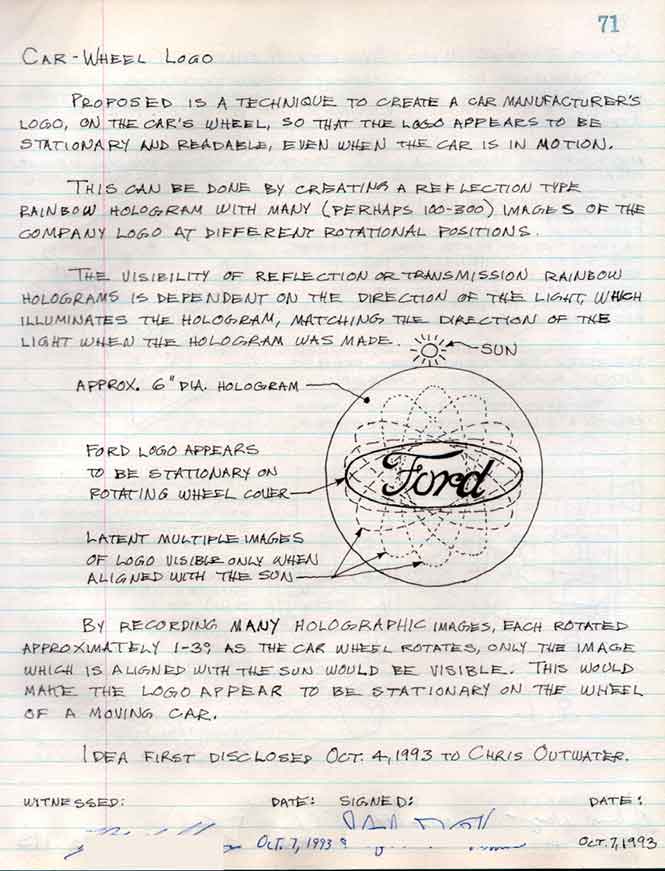 71
CAR-WHEEL LOGO
PROPOSED IS A TECHNIQUE TO CREATE A CAR MANUFACTURER'S
LOGO, ON THE CAR'S WHEEL, SO THAT THE LOGO APPEARS TO BE
STATIONARY AND READABLE, EVEN WHEN THE CAR IS IN MOTION.
THIS CAN BE DONE BY CREATING A REFLECTION TYPE
RAINBOW HOLOGRAM WITH MANY (PERHAPS 100-300) IMAGES OF THE
COMPANY LOGO AT DIFFERENT ROTATIONAL POSITIONS.
THE VISIBILITY OF REFLECTION OR TRANSMISSION RAINBOW
HOLOGRAMS IS DEPENDENT ON THE DIRECTION OF THE LIGHT, WHICH
ILLUMINATES THE HOLOGRAM, MATCHING THE DIRECTION OF THE
LIGHT WHEN THE HOLOGRAM WAS MADE.
SUN
APPROX. 6" DIA. HOLOGRAM
FORD LOGO APPEARS
TO BE STATIONARY ON
ROTATING WHEEL COVER
Ford
LATENT MULTIPLE IMAGES
OF LOGO VISIBLE ONLY WHEN
ALIGNED WITH THE SUN
BY RECORDING MANY HOLOGRAPHIC IMAGES, EACH ROTATED
APPROXIMATELY 1-3°, AS THE CAR WHEEL ROTATES, ONLY THE IMAGE
WHICH IS ALIGNED WITH THE SUN WOULD BE VISIBLE. THIS WOULD
MAKE THE LOGO APPEAR TO BE STATIONARY ON THE WHEEL
OF A MOVING CAR.
IDEA FIRST DISCLOSED OCT. 4, 1993 TO CHRIS OUTWATER.
WITNESSED: DATE: SIGNED: DATE:
OCT. 7, 1993 OCT. 7, 1993